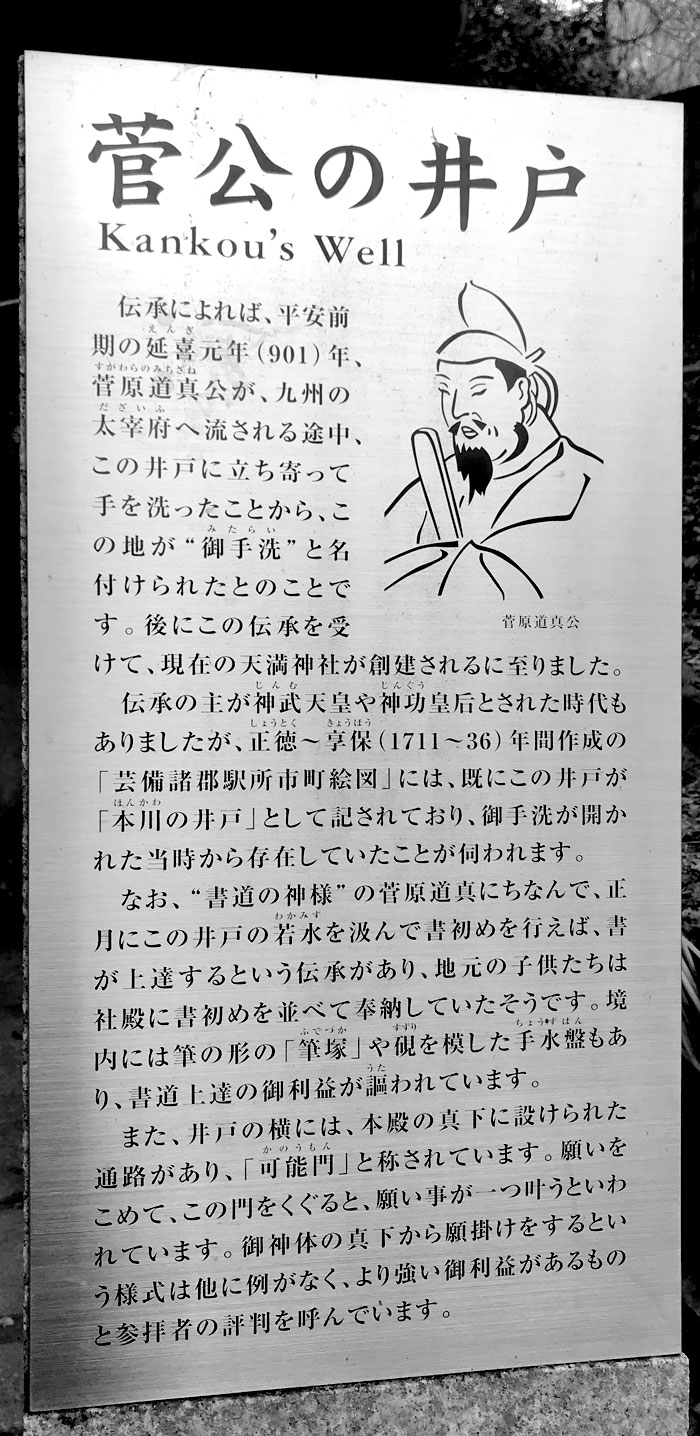 菅公の井戸
Kankou's Well
伝承によれば、平安前
期の延喜元年(901)年、
菅原道真公が、九州の
太宰府へ流される途中、
この井戸に立ち寄って
手を洗ったことから、こ
の地が“御手洗”と名
付けられたとのことで
す。後にこの伝承を受
けて、現在の天満神社が創建されるに至りました。
菅原道真公
伝承の主が神武天皇や神功皇后とされた時代も
ありましたが、正徳~享保(1711~36)年間作成の
「芸備諸郡駅所市町絵図」には、既にこの井戸が
「本川の井戸」として記されており、御手洗が開か
れた当時から存在していたことが伺われます。
なお、“書道の神様”の菅原道真にちなんで、正
月にこの井戸の若水を汲んで書初めを行えば、書
が上達するという伝承があり、地元の子供たちは
社殿に書初めを並べて奉納していたそうです。境
内には筆の形の「筆塚」や硯を模した手水盤もあ
り、書道上達の御利益が謳われています。
また、井戸の横には、本殿の真下に設けられた
通路があり、「可能門」と称されています。願いを
こめて、この門をくぐると、願い事が一つ叶うといわ
れています。御神体の真下から願掛けをするとい
う様式は他に例がなく、より強い御利益があるもの
と参拝者の評判を呼んでいます。